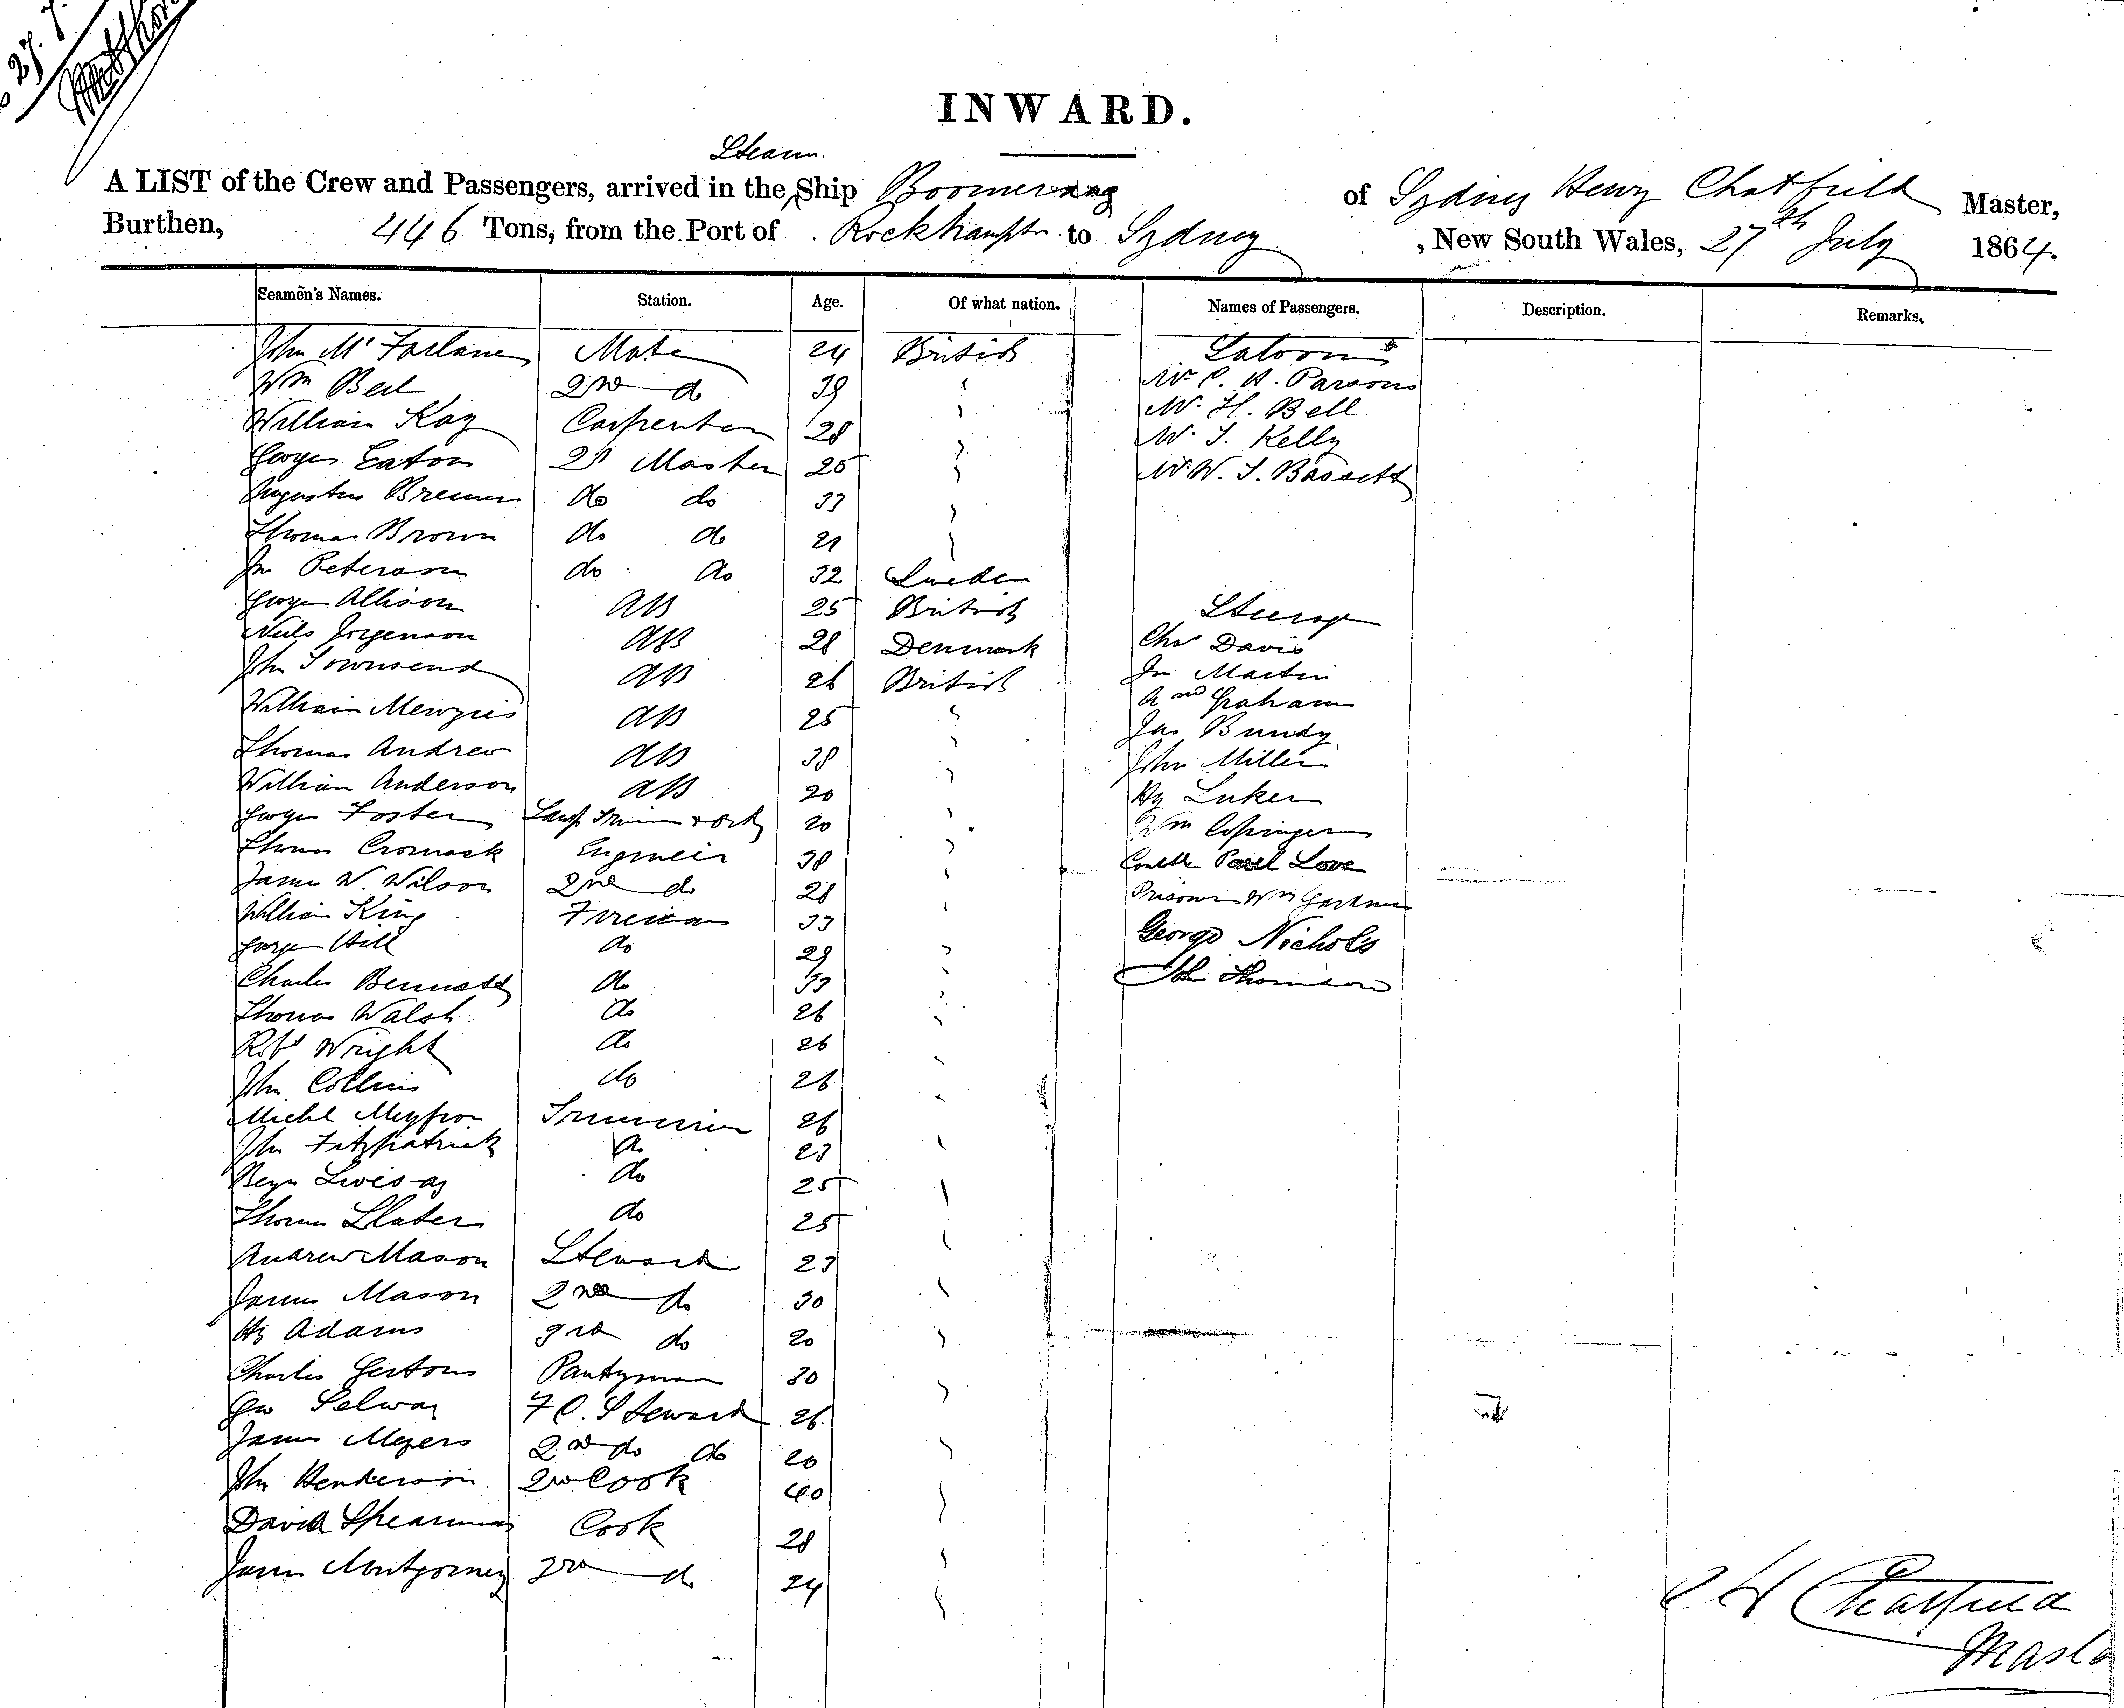 27.7.
INWARD.
Steam
A LIST of the Crew and Passengers, arrived in the Ship Boomerang of Sydney Henry Chatfield Master,
Burthen, 446 Tons, from the Port of Rockhampton to Sydney, New South Wales, 27th July 1864.
Seamen's Names. Station. Age. Of what nation. Names of Passengers. Description. Remarks.
John McFarlane Mate 24 British Saloon
Wm Bell 2nd do 39 " Mr C. H. Parsons
William Kay Carpenter 28 " Mr H. Bell
George Eaton Qr Master 25 " Mr J. Kelly
Augustus Bremer do do 33 " Mr W. J. Bassett
Thomas Brown do do 21 "
Jn Peterson do do 32 Sweden
George Allison AB 25 British Steerage
Neils Jorgenson AB 28 Denmark Chas Davis
John Townsend AB 26 British Jn Martin
William Menzies AB 25 " Graham
Thomas Andrew AB 38 " Jas Bundy
William Anderson AB 20 " John Miller
George Foster Lamp Trimmer & Ordy 20 " Hy Luker
Thomas Cromack Engineer 38 " Wm Copinger
James W. Wilson 2nd do 28 " Conble Love
William King Fireman 33 " Prisoner Wm Gardner
George Hill do 29 " George Nichols
Charles Bennett do 33 " John Thomson
Thomas Walsh do 26 "
Robt Wright do 26 "
John Collins do 26 "
Michl Trimmer 26 "
John Fitzpatrick do 23 "
Benjn Livesay do 25 "
Thomas Slater do 25 "
Andrew Mason Steward 23 "
James Mason 2nd do 30 "
Hy Adams 3rd do 20 "
Charles Pantryman 30 "
Geo Selway F C. Steward 26 "
James Meyers 2nd do do 20 "
John Henderson 2nd Cook 40 "
David Spearman Cook 28 "
James Montgomery 3rd do 24 "
Chatfield
Master